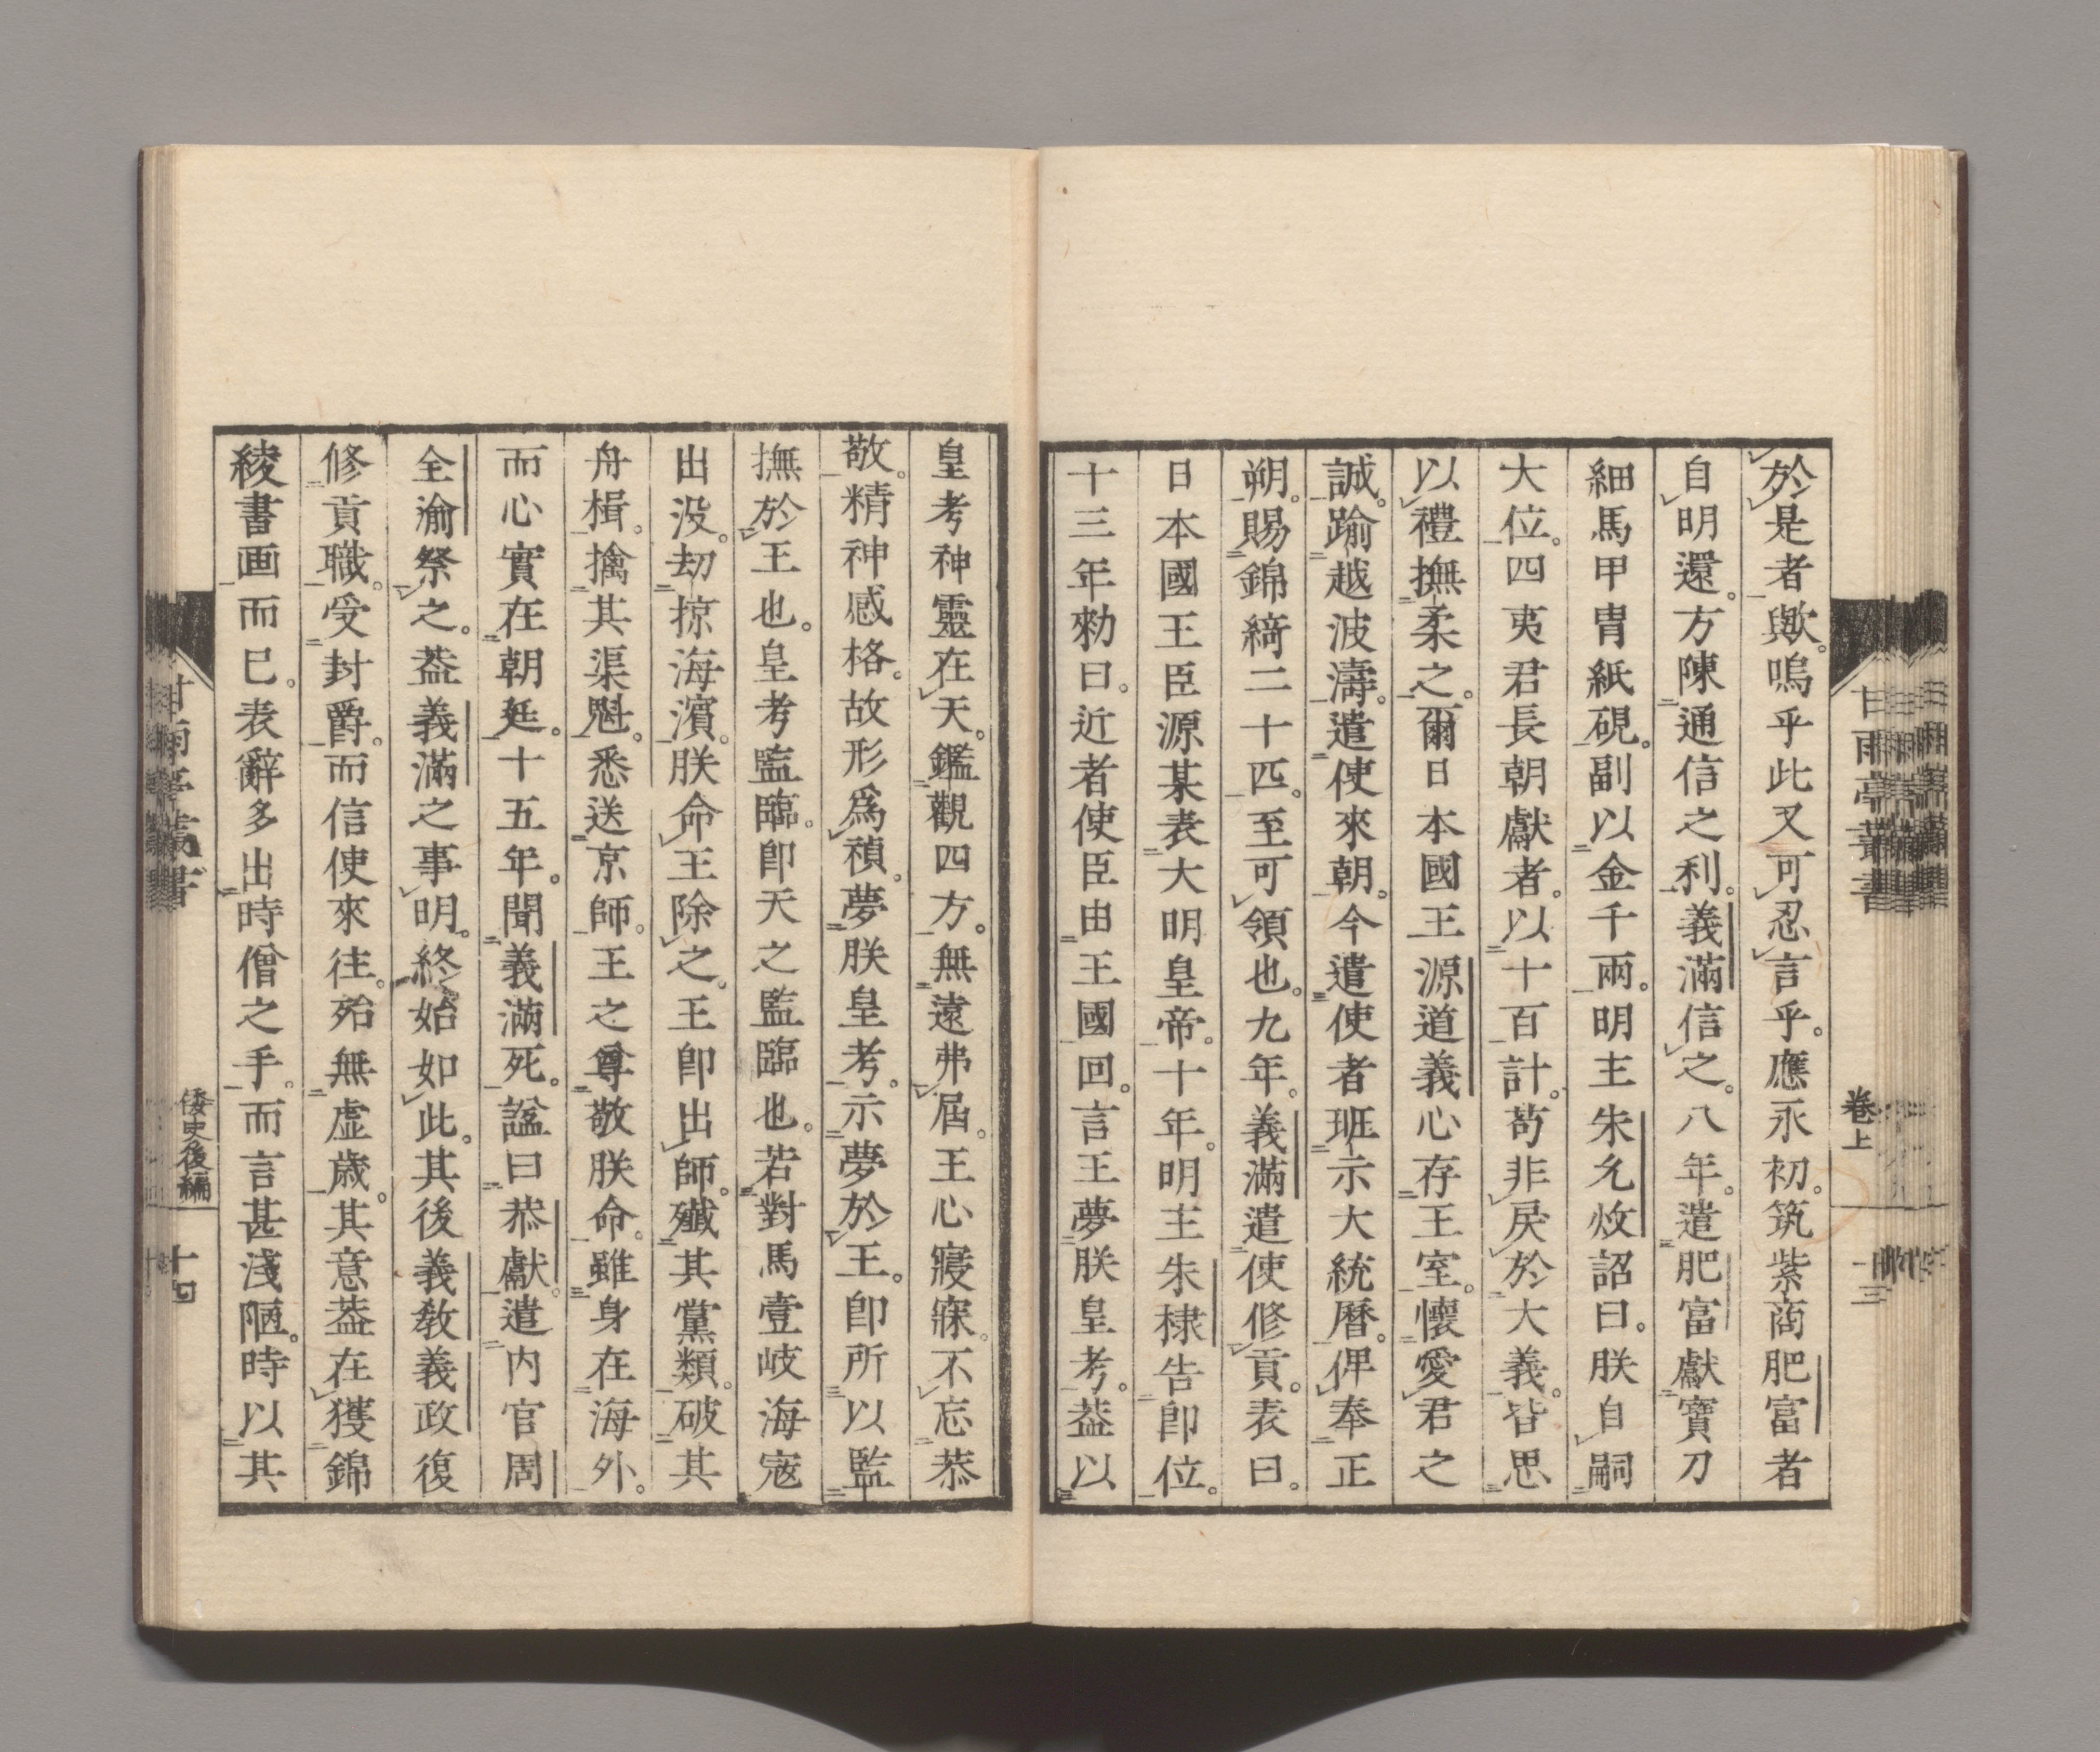 於是者歟。嗚乎此又可忍言乎。應永初。筑紫商肥富者
自明還。方陳通信之利。義滿信之。八年。遣肥富獻寶刀
細馬甲冑紙硯。副以金千兩。明主朱允炆詔曰。朕自嗣
大位。四夷君長朝獻者。以十百計。苟非戾於大義。皆思
以禮撫柔之。爾日本國王源道義心存王室。懷愛君之
誠。踰越波濤。遣使來朝。今遣使者班示大統曆。俾奉正
朔。賜錦綺二十匹。至可領也。九年。義滿遣使修貢。表曰。
日本國王臣源某表大明皇帝。十年。明主朱棣告卽位。
十三年勑曰。近者使臣由王國回。言王夢朕皇考。葢以
皇考神靈在天。鑑觀四方。無遠弗屆。王心寢寐。不忘恭
敬。精神感格。故形爲禎。夢朕皇考。示夢於王。卽所以監
撫於王也。皇考監臨。卽天之監臨也。若對馬壹岐海寇
出沒。劫掠海濱。朕命王除之。王卽出師。殲其黨類。破其
舟楫。擒其渠魁。悉送京師。王之尊敬朕命。雖身在海外。
而心實在朝廷。十五年。聞義滿死。諡曰恭獻。遣内官周
全渝祭之。葢義滿之事明。終始如此。其後義敎義政復
修貢職。受封爵。而信使來往。殆無虛歲。其意葢在獲錦
綾書画而已。表辭多出時僧之手。而言甚淺陋。時以其
甘雨亭叢書
卷上
十三
倭史後編
十四